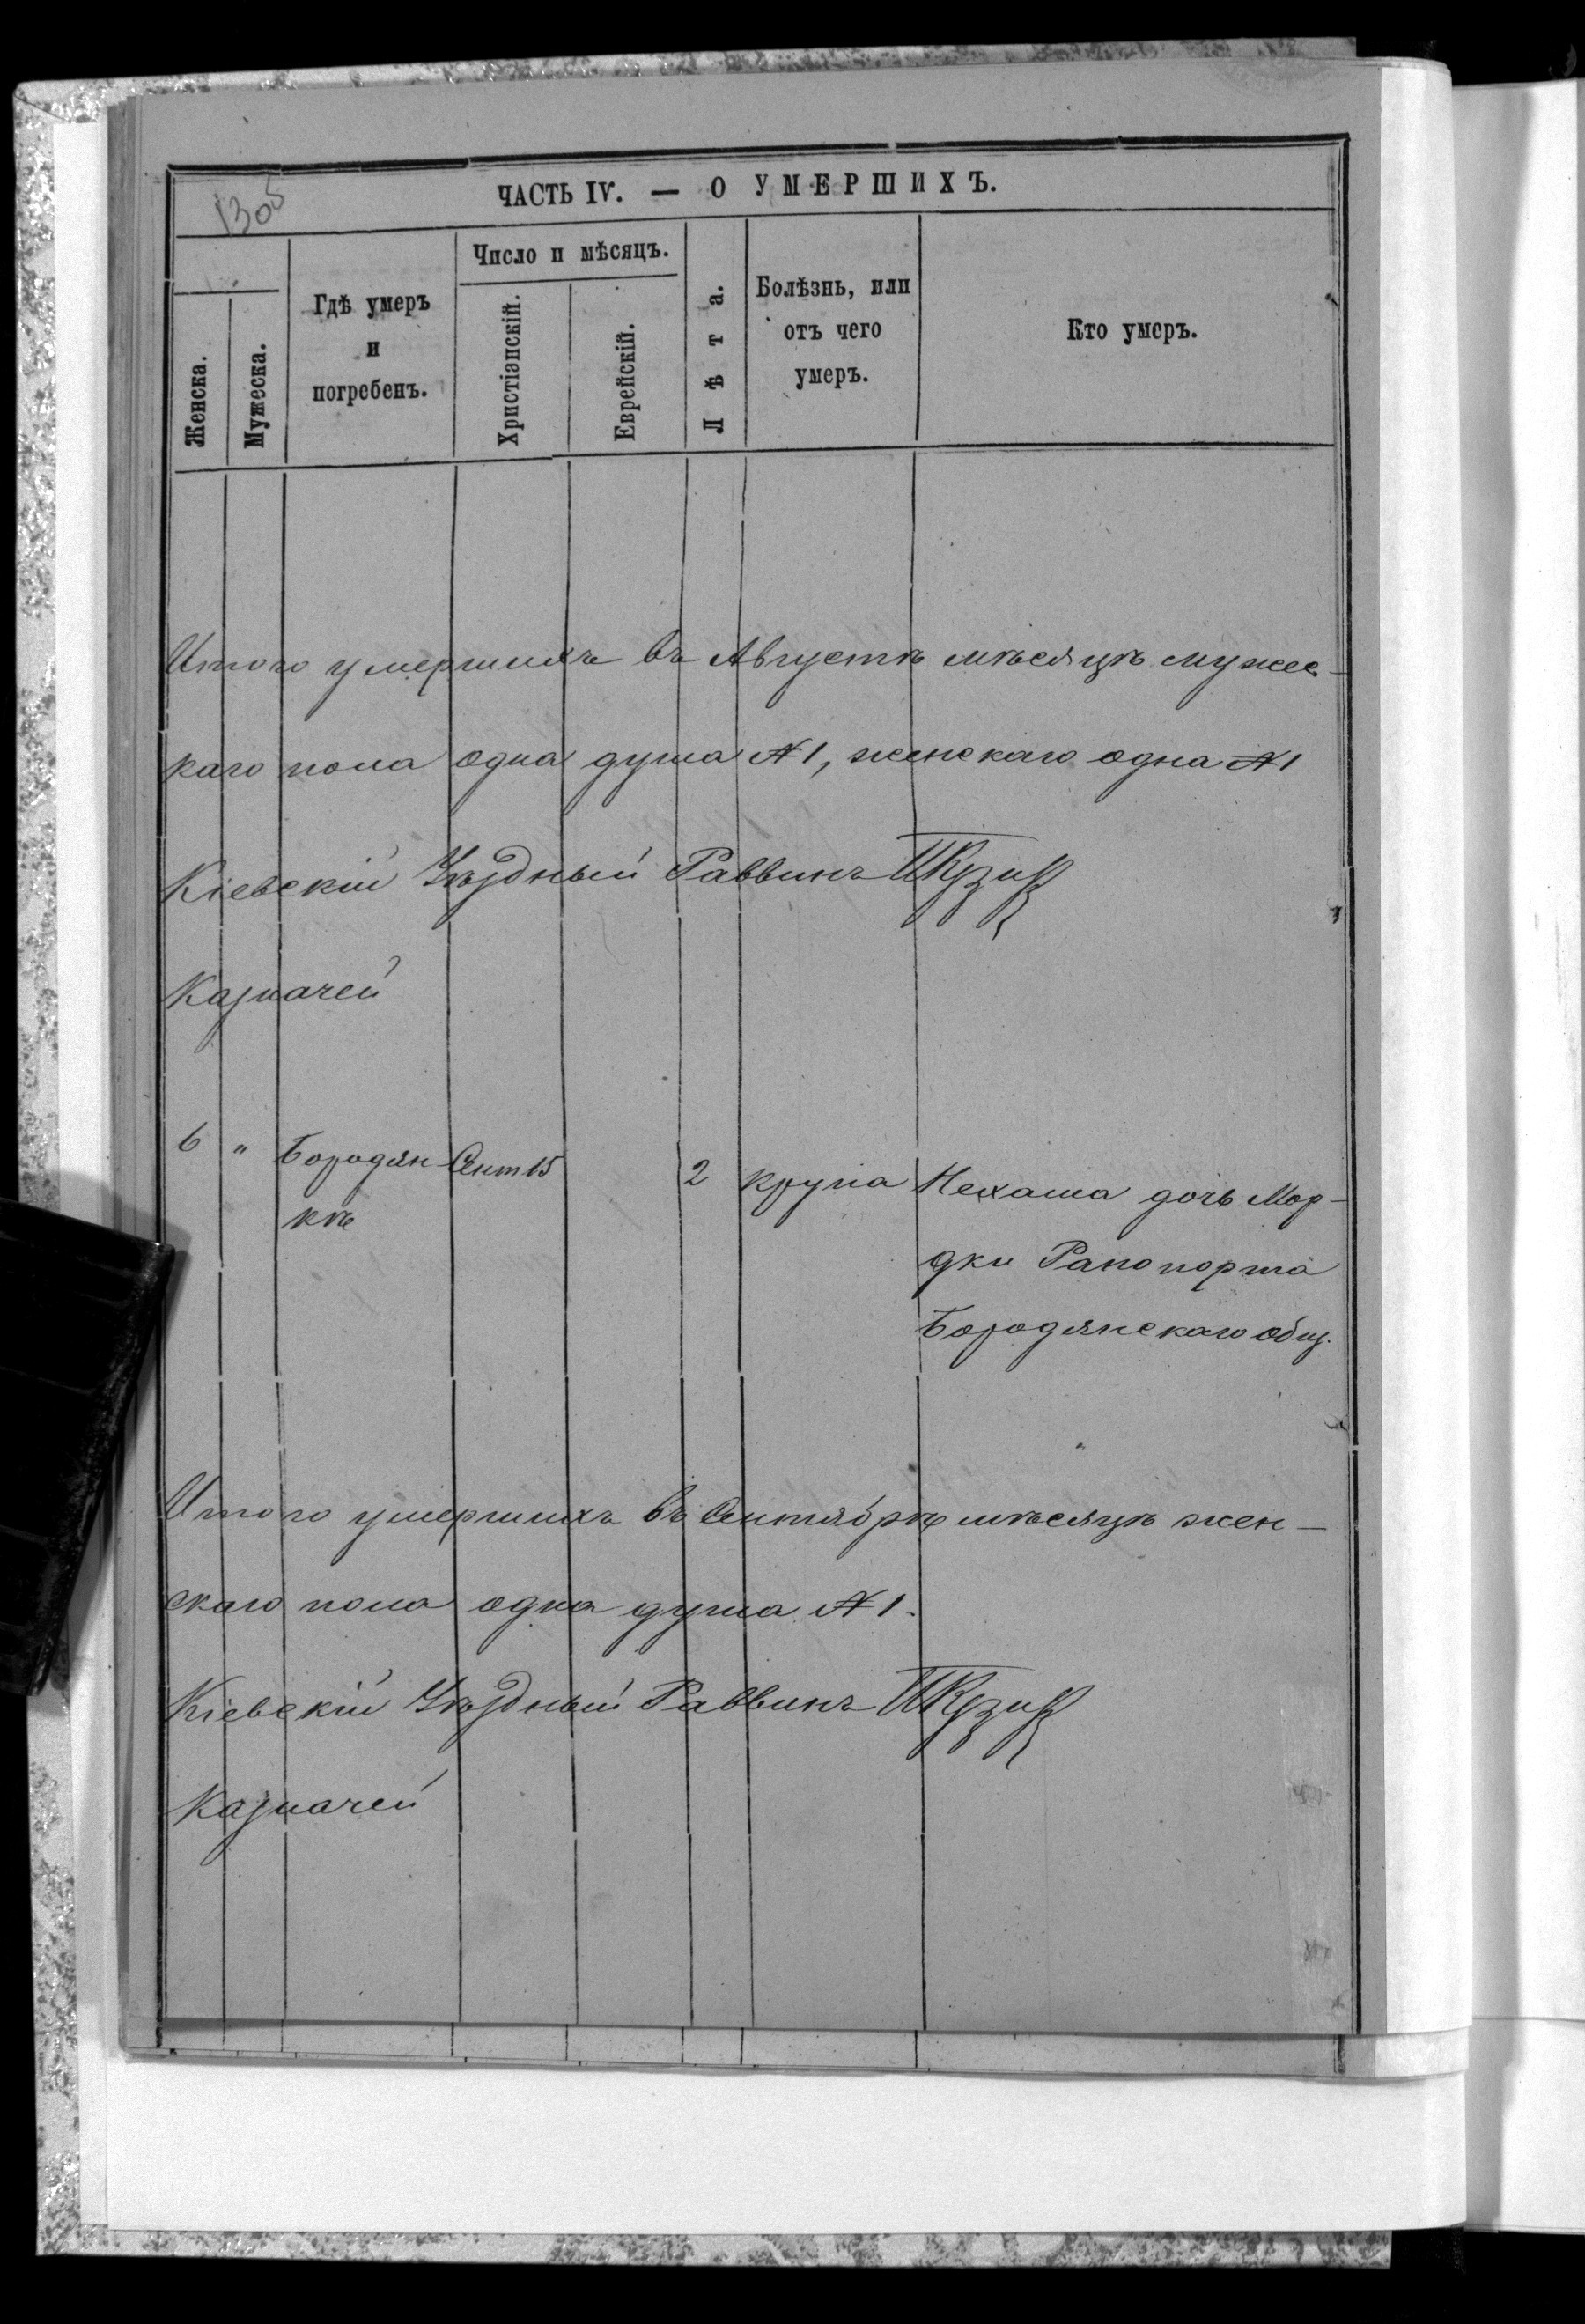 1305
ЧАСТЬ IV. — О УМЕРШИХЪ.
Женска.
Мужеска.
Гдѣ умеръ
и
погребенъ.
Число и мѣсяцъ.
Христіанскій.
Еврейскій.
Лѣта.
Болѣзнь, или
отъ чего
умеръ.
Кто умеръ.
Итого умершихъ въ Августѣ мѣсяцѣ мужес-
каго пола одна душа № 1, женскаго одна № 1
Кіевскій Уѣздный Раввинъ
Казначей
6 " Бородян- Сент 15 2 крупа Нехама дочь Мор-
кѣ
дки Рапопорта
Бородянскаго общ.
Итого умершихъ въ Сентябрѣ мѣсяцѣ жен-
скаго пола одна душа № 1.
Кіевскій Уѣздный Раввинъ
Казначей